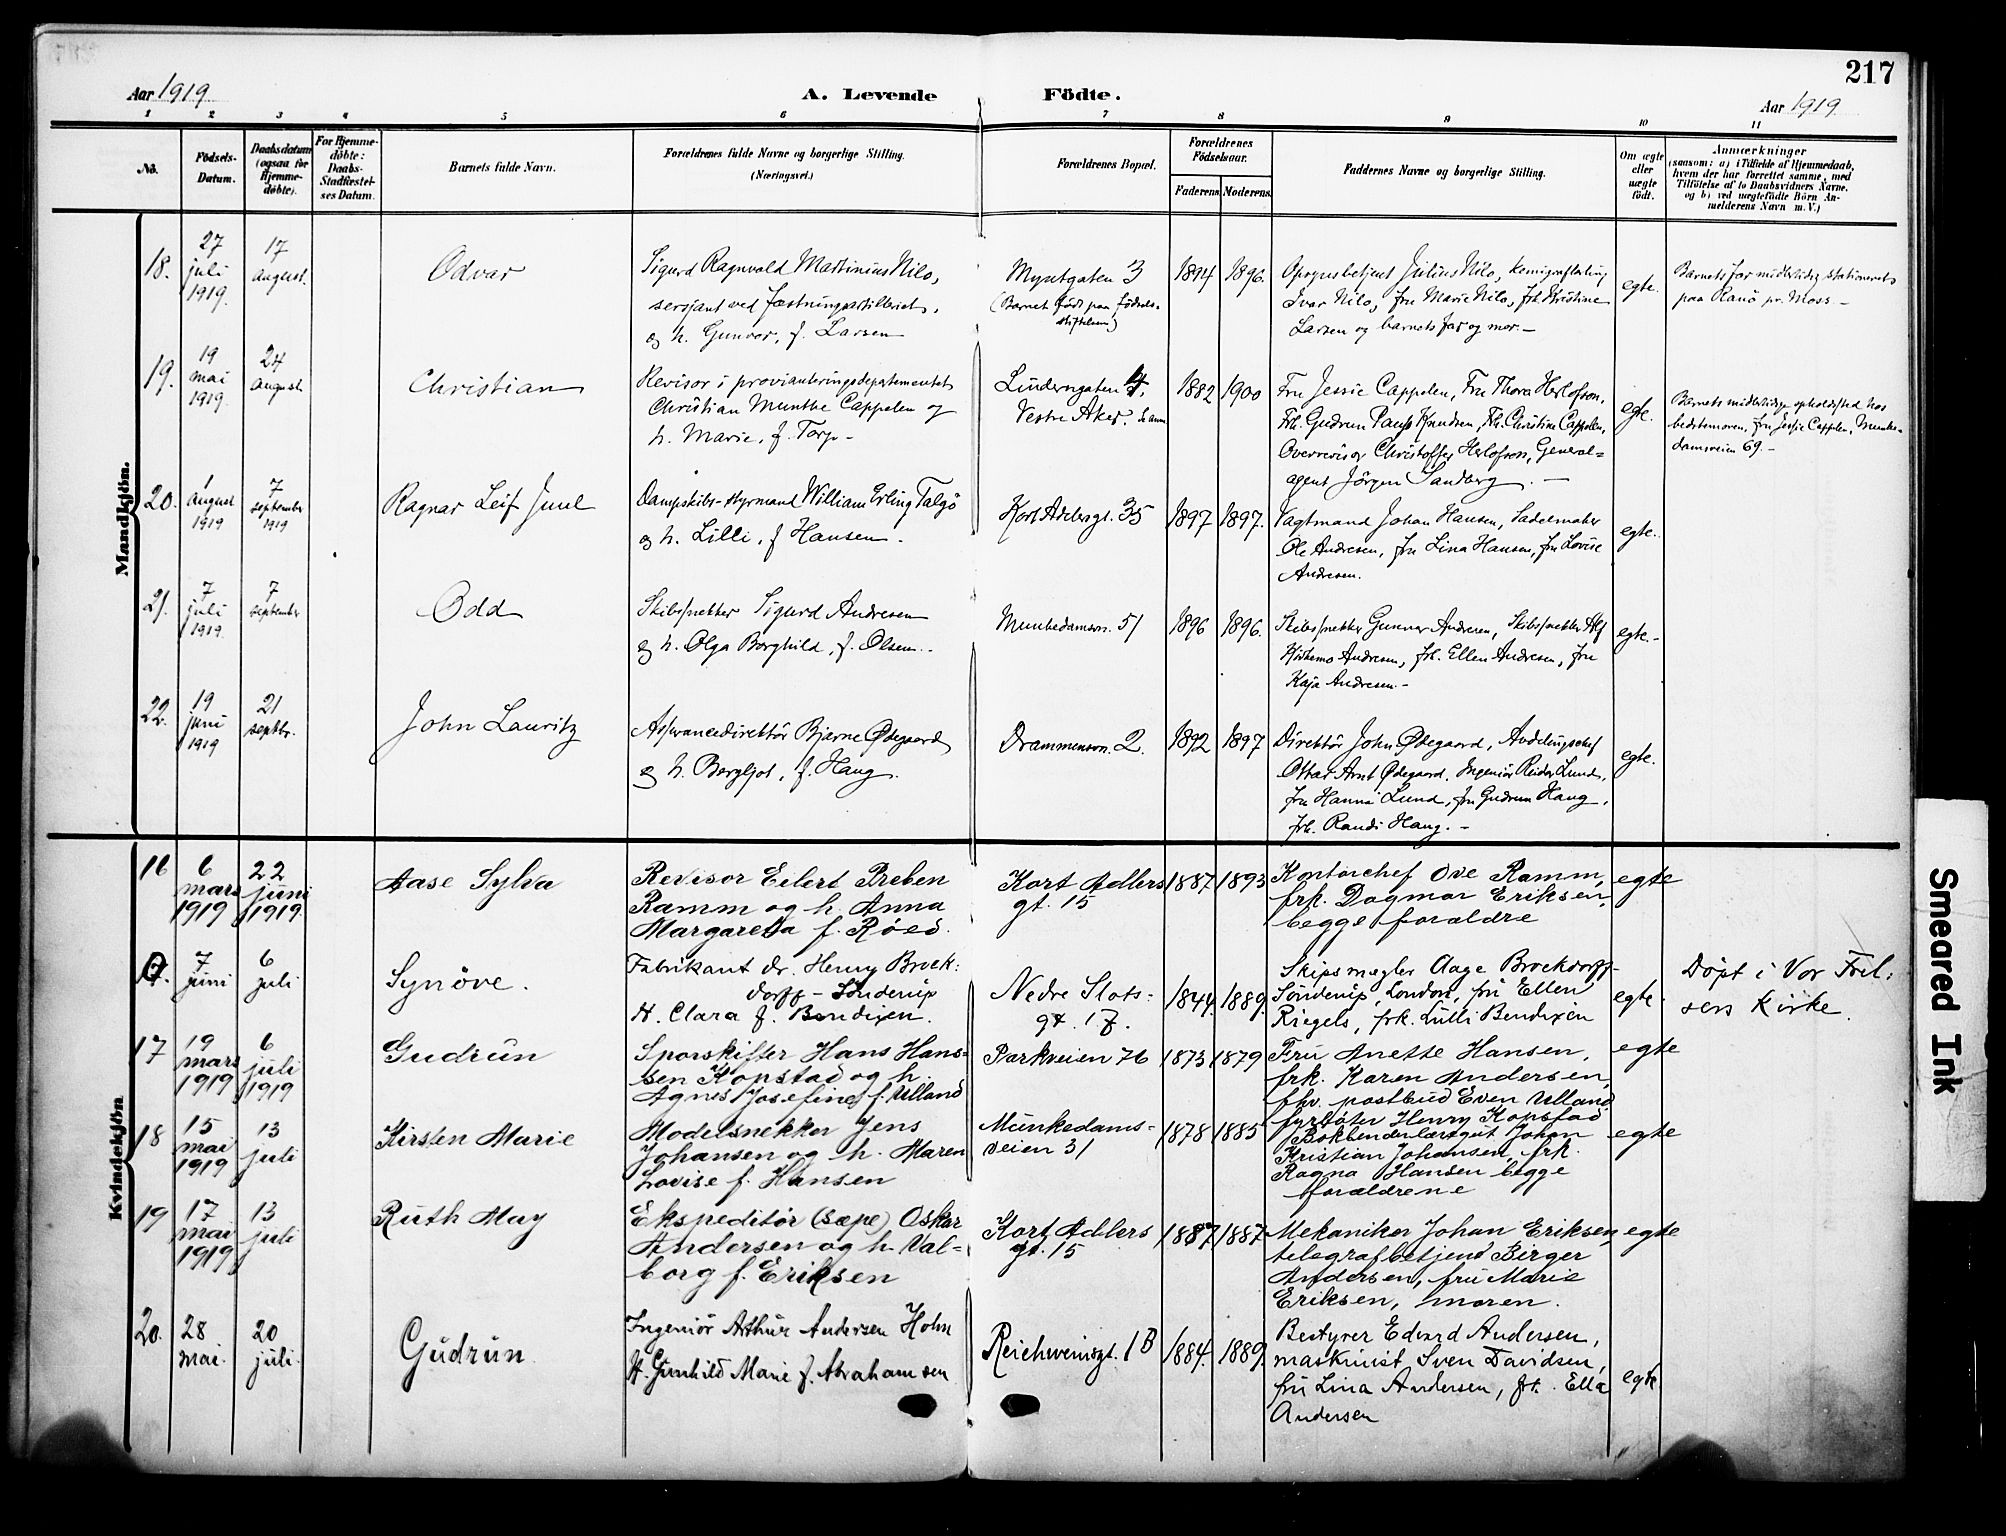 217
Aar 1919.
A. Levende Födte.
Aar 1919.
1 2 3 4 5 6 7 8 9 10 11
No.
Födsels-
Datum.
Daabsdatum
(ogsaa for
Hjemme-
döbte).
For Hjemme-
döbte:
Daabs-
Stadfæstel-
ses Datum.
Barnets fulde Navn.
Forældrenes fulde Navne og borgerlige Stilling.
(Næringsvei.)
Forældrenes Bopæl.
Forældrenes
Födselsaar.
Faderens Moderens
Faddernes Navne og borgerlige Stilling.
Om ægte
eller
uægte
födt.
Anmærkninger
(saasom: a) i Tilfælde af Hjemmedaab,
hvem der har forrettet samme, med
Tilföielse af to Daabsvidners Navne,
og b) ved uægtefödte Börn An-
melderens Navn m. V.)
Mandkjön.
18.
27
juli
1919.
17
august.
Odvar
Sigurd Ragnvald Martinius Nilo,
sersjant ved fæstningsartilleriet,
og h. Gunvor, f. Larsen
Myntgaten 3
(Barnet født paa Fødsels-
stiftelsen)
1894 1896.
Opsynsbetjent Julius Nilo,
Ivar Nilo, fru Marie Nilo, frk Kristine
Larsen og barnets far og mor.-
egte.
Barnets far midlertidig stationeret
paa Ranö pr. Moss-
19.
19
mai
1919.
24
august
Christian
Revisor i provianteringsdepartementet
Christian Munthe Cappelen og
h. Marie, f. Torp-
Vestre Aker.
1882 1900
Fru Jessie Cappelen, Fru Thora Herlofson,
Frk. Gudrun Paus Knudsen, Frk. Christine Cappelen,
Overrevisor Christoffer Herlofson, General=
agent Jörgen Sandberg. -
egte.
Barnets midlertidig opholdssted hos
bedstemoren, fru Jessie Cappelen, Munke-
damsveien 69.-
20.
1
august
1919
7
september
1919
Ragnar Leif Juul
Dampskibs-styrmand William Erling Talgö
og h. Lilli, f. Hansen.
Kort Adelersgt. 35
1897 1897.
Vagtmand Johan Hansen, Sadelmaker
Ole Andresen, fru Lina Hansen, fru Lovise
Andresen.
egte.
21.
7
juli
1919.
7
september
Odd
Skibssnekker Sigurd Andresen
og h. Olga Borghild, f. Olsen.
Munkedamsvn. 51
1896 1896.
Skibssnekker Gunnar Andresen, Skibssnekker Alf
Andresen, frk. Ellen Andresen, fru
Kaja Andresen.-
egte.-
22.
19
juni
1919
21
septbr.
John Lauritz
Assurancedirektör Bjarne Ødegaard
og h. Bergljot, f. Haug.
Drammensvn. 2.
1892 1897
Direktör John Ødegaard, Avdelingschef
Ottar Arnt Ødegaard, Ingeniör Reidar Lund,
fru Hanna Lund, fru Gudrun Haug,
frk. Randi Haug.-
egte.
Kvindekjön
16
6
mars
1919
22
juni
1919.
Aase Sylva
Revisor Eilert Preben
Ramm og h. Anna
Margaretha f. Röed.
Kort Adlers
gt. 15
1887 1893
Kontorchef Ove Ramm,
frk. Dagmar Eriksen,
begge forældre
egte
7
juni
6
juli
Synöve.
Fabrikant dr. Henry Brock:
dorff - Sönderup
H. Clara f. Bendixen.
Nedre Slots=
gt. 17.
1844. 1889.
Skipsmægler Aage Brockdorff-
Sönderup, London, fru Ellen
Riegels, frk. Lulli Bendixen
egte.
Døpt i Vor Frel:
sers Kirke.
17
19
mars
1919
6
juli
1919
Gudrun
Sporskifter Hans Hans=
sen Kopstad og h.
Agnes Josefine f. Ulland
Parkveien 76
1873 1879
Fru Anette Hansen,
frk. Karen Andersen,
fhv. postbud Even Ulland,
fyrböter Henry Kopstad
egte
18
15
mai
1919
13
juli
Kirsten Marie
Modelsnekker Jens
Johansen og h. Maren
Lovise f. Hansen
Munkedams=
veien 31
1878 1885
Bokbinderlæregut Johan
Kristian Johansen, frk.
Ragna Hansen begge
forældrene
egte
19
17
mai
1919
13
juli
Ruth May
Ekspeditör (sæpe) Oskar
Andersen og h. Val-
borg f. Eriksen
Kort Adlers
gt. 15
1887 1887
Mekaniker Johan Eriksen,
telegrafbetjent Birger
Andersen, fru Marie
Eriksen, moren.
egte
20.
28
mai.
20
juli.
Gudrun
Ingeniör Arthur Andersen Holm
H. Gunhild Marie f. Abrahamsen
Reichweinsgt. 1B
1884. 1889.
Bestyrer Edvard Andersen,
maskinist Sven Davidsen,
fru Lina Andersen, frk. Ella
Andersen
egte.
Smeared Ink